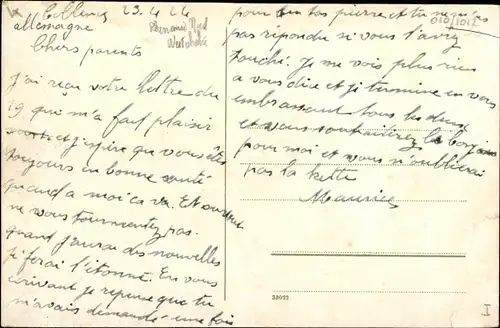 23.4.24
allemagne
Chers parents
J'ai reçu votre lettre du
19 qui m'a fait plaisir
j'espère que vous êtes
toujours en bonne santé
quand a moi ca va. Et surtout
ne vous tourmentez pas.
quand j'aurai des nouvelles
je ferai l'étonné. En vous
écrivant je repense que tu
m'avais demandé une fois
pour un tas pierre et tu
pas répondu si vous l'avez
touché. Je ne vois plus rien
a vous dire et je termine en vous
embrassant tous les deux
et vous le bonjour
pour moi et vous n'oublierai
pas la
Maurice
010/1012
33022
I